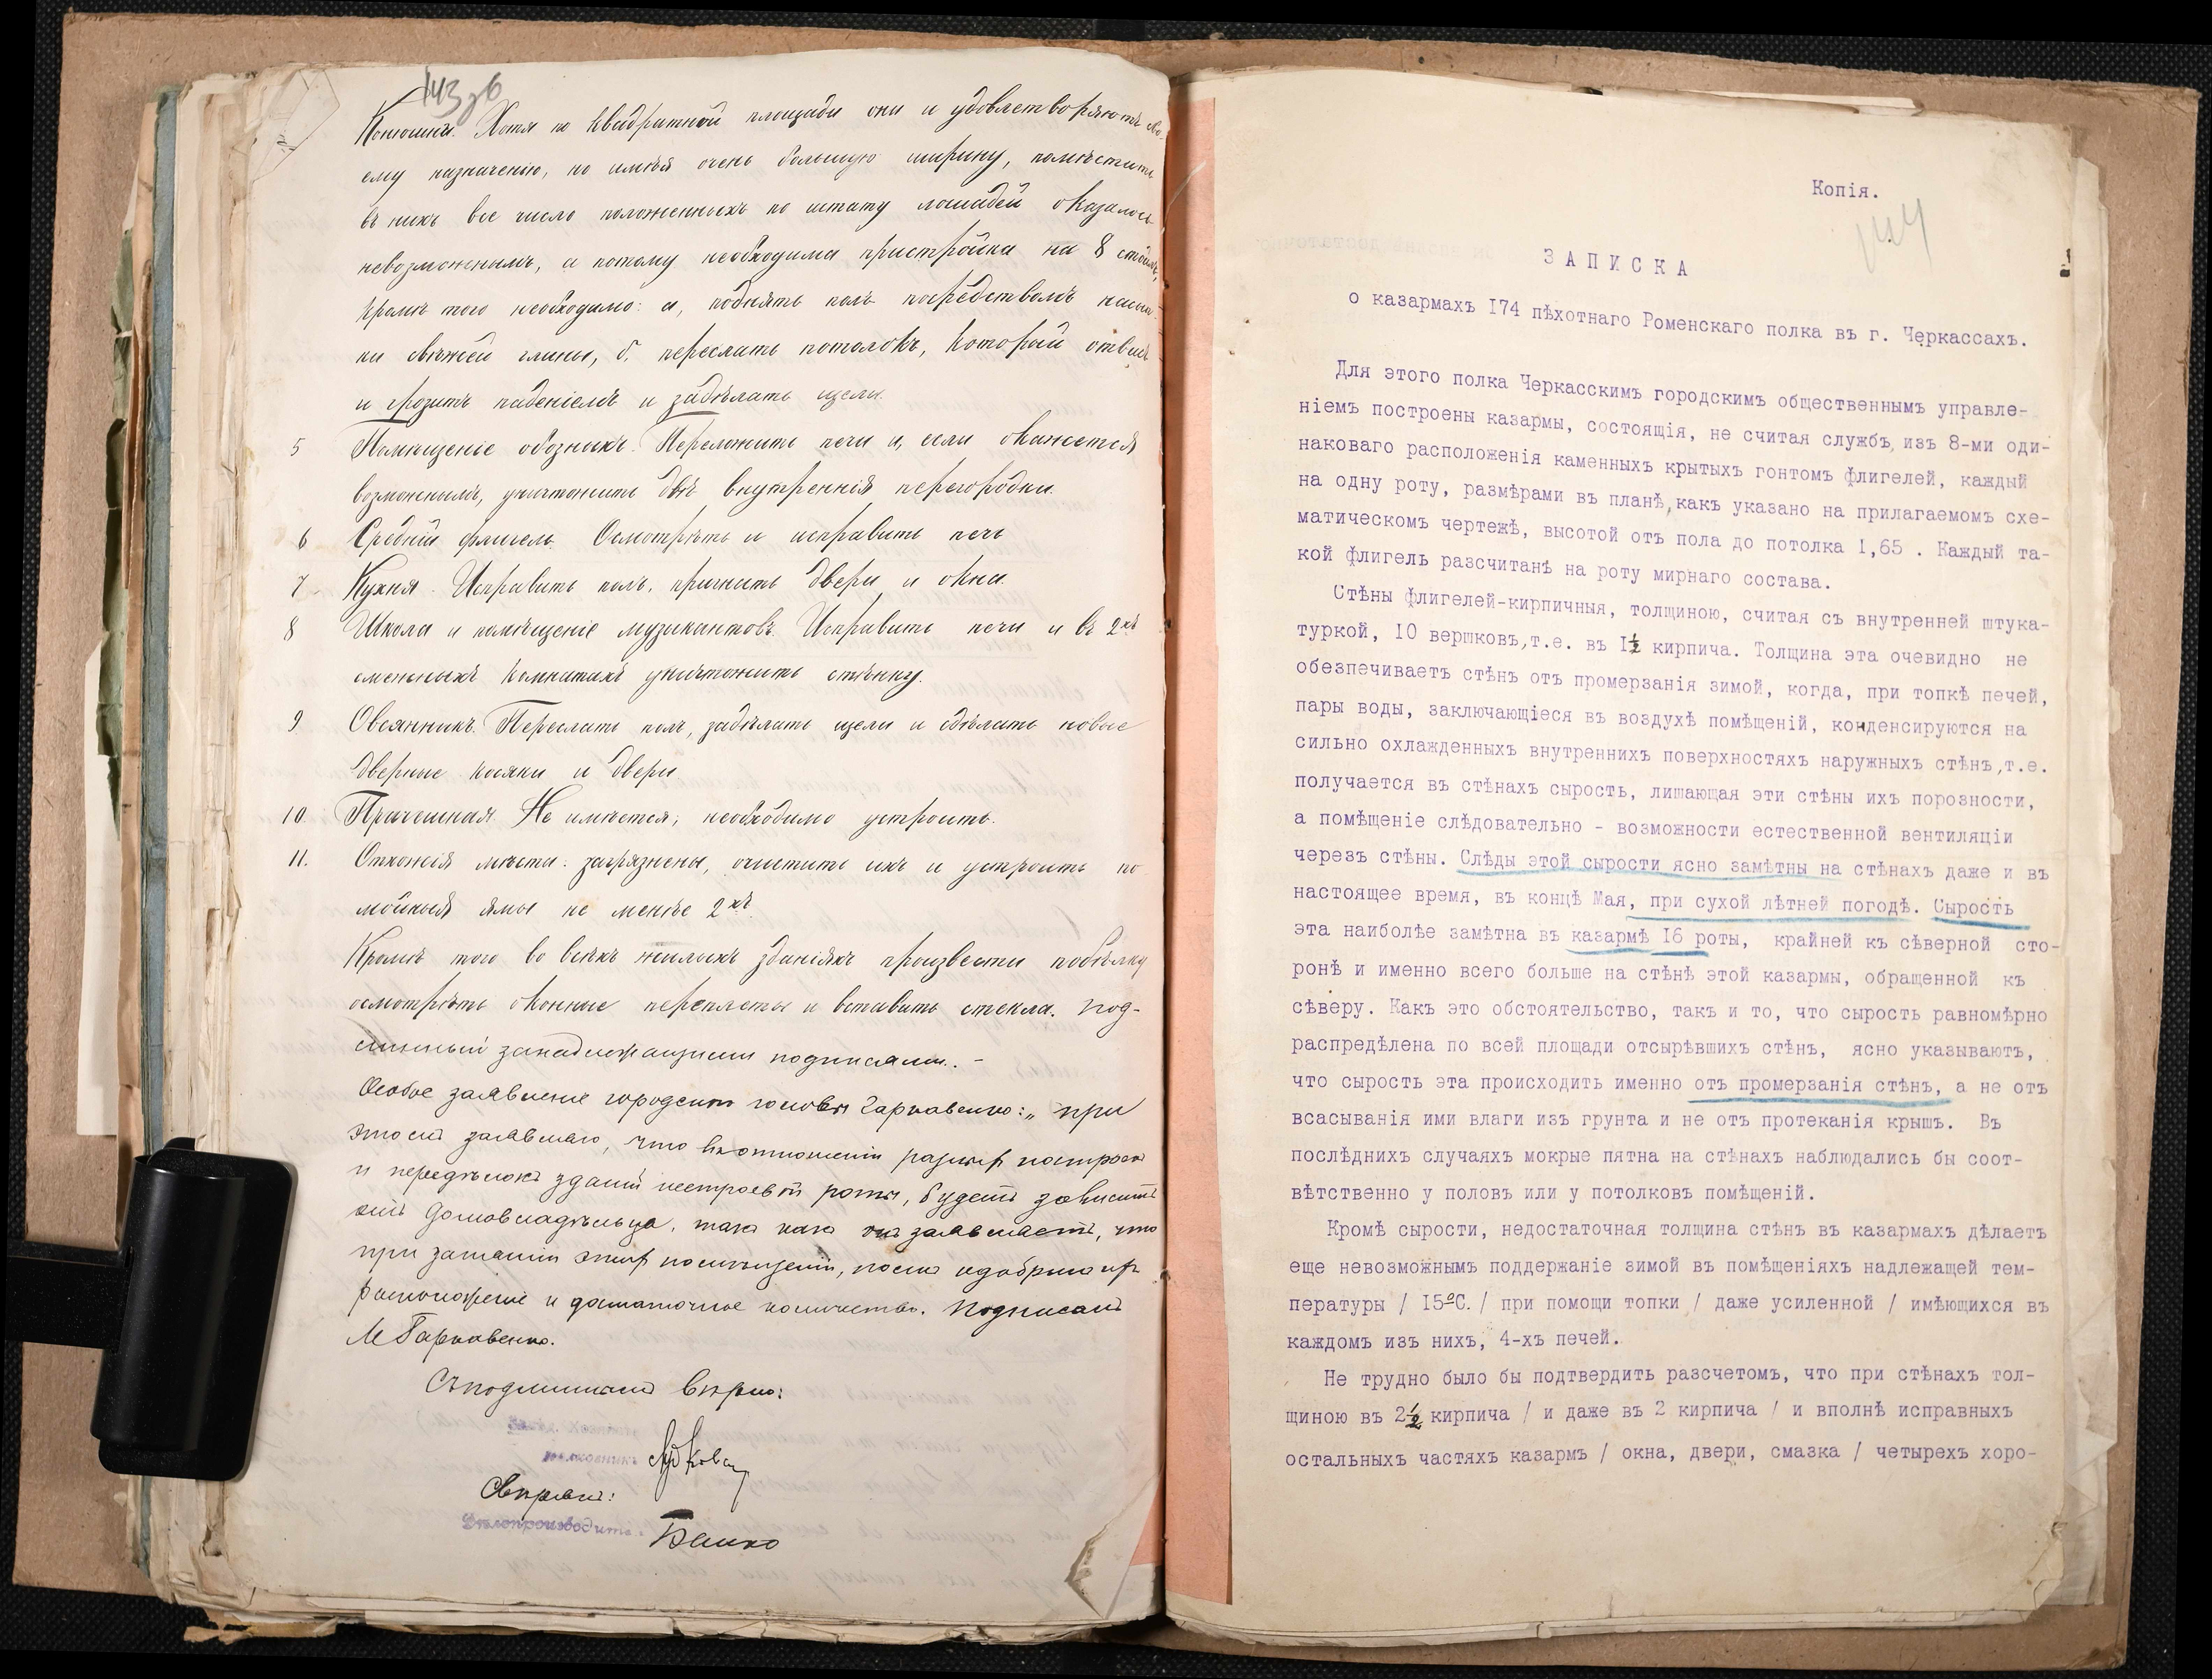 143 об
Конюшня. Хотя по квадратной площади они и удовлетворяютъ сво-
ему назначенію, но имѣя очень большую ширину, помѣстить
въ нихъ все число положенныхъ по штату лошадей оказалось
невозможнымъ, а потому необходима пристройка на 8 стойлъ,
кромѣ того необходимо: а, поднять полъ посредствомъ насып-
ки свѣжей глины, б, переслать потолокъ, который отвисъ
и грозитъ паденіемъ и задѣлать щели.
5 Помѣщеніе обозныхъ. Переложить печи и, если окажется
возможнымъ, уничтожить двѣ внутреннія перегородки.
6 Средній флигель. Осмотрѣть и исправить печь
7 Кухня. Исправить полъ, пригнать двери и окна.
8 Школа и помѣщеніе музыкантовъ. Исправить печи и въ 2хъ
смежныхъ комнатахъ уничтожить стѣнку.
9 Овсянникъ. Переслать полъ, задѣлать щели и сдѣлать новые
дверные косяки и двери
10. Прачешная. Не имѣется, необходимо устроить.
11. Отхожія мѣста: загрязнены, очистить ихъ и устроить по-
мойныя ямы не менѣе 2хъ.
Кромѣ того во всѣхъ жилыхъ зданіяхъ произвести побѣлку
осмотрѣть оконные переплеты и вставить стекла. Под-
линный за надлежащими подписями. -
Особое заявленіе городского головы Гарковенко: „при
этомъ заявляю, что въ отношеніи построекъ
и передѣлокъ зданій нестроевой роты, будетъ зависить
отъ домовладѣльца, такъ какъ онъ заявляетъ, что
при занятіи этихъ помѣщеній, полкъ одобрилъ ихъ
расположеніе и достаточное количество. Подписалъ
М Гарковенко.
Съ подлиннымъ вѣрно:
Завѣд. Хозяйств.
полковникъ
Свѣрялъ:
Дѣлопроизводитель
Копія.
144
ЗАПИСКА
о казармахъ I74 пѣхотнаго Роменскаго полка въ г. Черкассахъ.
Для этого полка Черкасскимъ городскимъ общественнымъ управле-
ніемъ построены казармы, состоящія, не считая службъ, изъ 8-ми оди-
наковаго расположенія каменныхъ крытыхъ гонтомъ флигелей, каждый
на одну роту, размѣрами въ планѣ, какъ указано на прилагаемомъ схе-
матическомъ чертежѣ, высотой отъ пола до потолка 1,65 . Каждый та-
кой флигель разсчитанѣ на роту мирнаго состава.
Стѣны флигелей-кирпичныя, толщиною, считая съ внутренней штука-
туркой, I0 вершковъ, т.е. въ I½ кирпича. Толщина эта очевидно не
обезпечиваетъ стѣнъ отъ промерзанія зимой, когда, при топкѣ печей,
пары воды, заключающіеся въ воздухѣ помѣщеній, конденсируются на
сильно охлажденныхъ внутреннихъ поверхностяхъ наружныхъ стѣнъ, т.е.
получается въ стѣнахъ сырость, лишающая эти стѣны ихъ порозности,
а помѣщеніе слѣдовательно - возможности естественной вентиляціи
черезъ стѣны. Слѣды этой сырости ясно замѣтны на стѣнахъ даже и въ
настоящее время, въ концѣ Мая, при сухой лѣтней погодѣ. Сырость
эта наиболѣе замѣтна въ казармѣ I6 роты, крайней къ сѣверной сто-
ронѣ и именно всего больше на стѣнѣ этой казармы, обращенной къ
сѣверу. Какъ это обстоятельство, такъ и то, что сырость равномѣрно
распредѣлена по всей площади отсырѣвшихъ стѣнъ, ясно указываютъ,
что сырость эта происходитъ именно отъ промерзанія стѣнъ, а не отъ
всасыванія ими влаги изъ грунта и не отъ протеканія крышъ. Въ
послѣднихъ случаяхъ мокрые пятна на стѣнахъ наблюдались бы соот-
вѣтственно у половъ или у потолковъ помѣщеній.
Кромѣ сырости, недостаточная толщина стѣнъ въ казармахъ дѣлаетъ
еще невозможнымъ поддержаніе зимой въ помѣщеніяхъ надлежащей тем-
пературы / I5ºС. / при помощи топки / даже усиленной / имѣющихся въ
каждомъ изъ нихъ, 4-хъ печей.
Не трудно было бы подтвердить разсчетомъ, что при стѣнахъ тол-
щиною въ 2½ кирпича / и даже въ 2 кирпича / и вполнѣ исправныхъ
остальныхъ частяхъ казармъ / окна, двери, смазка / четырехъ хоро-